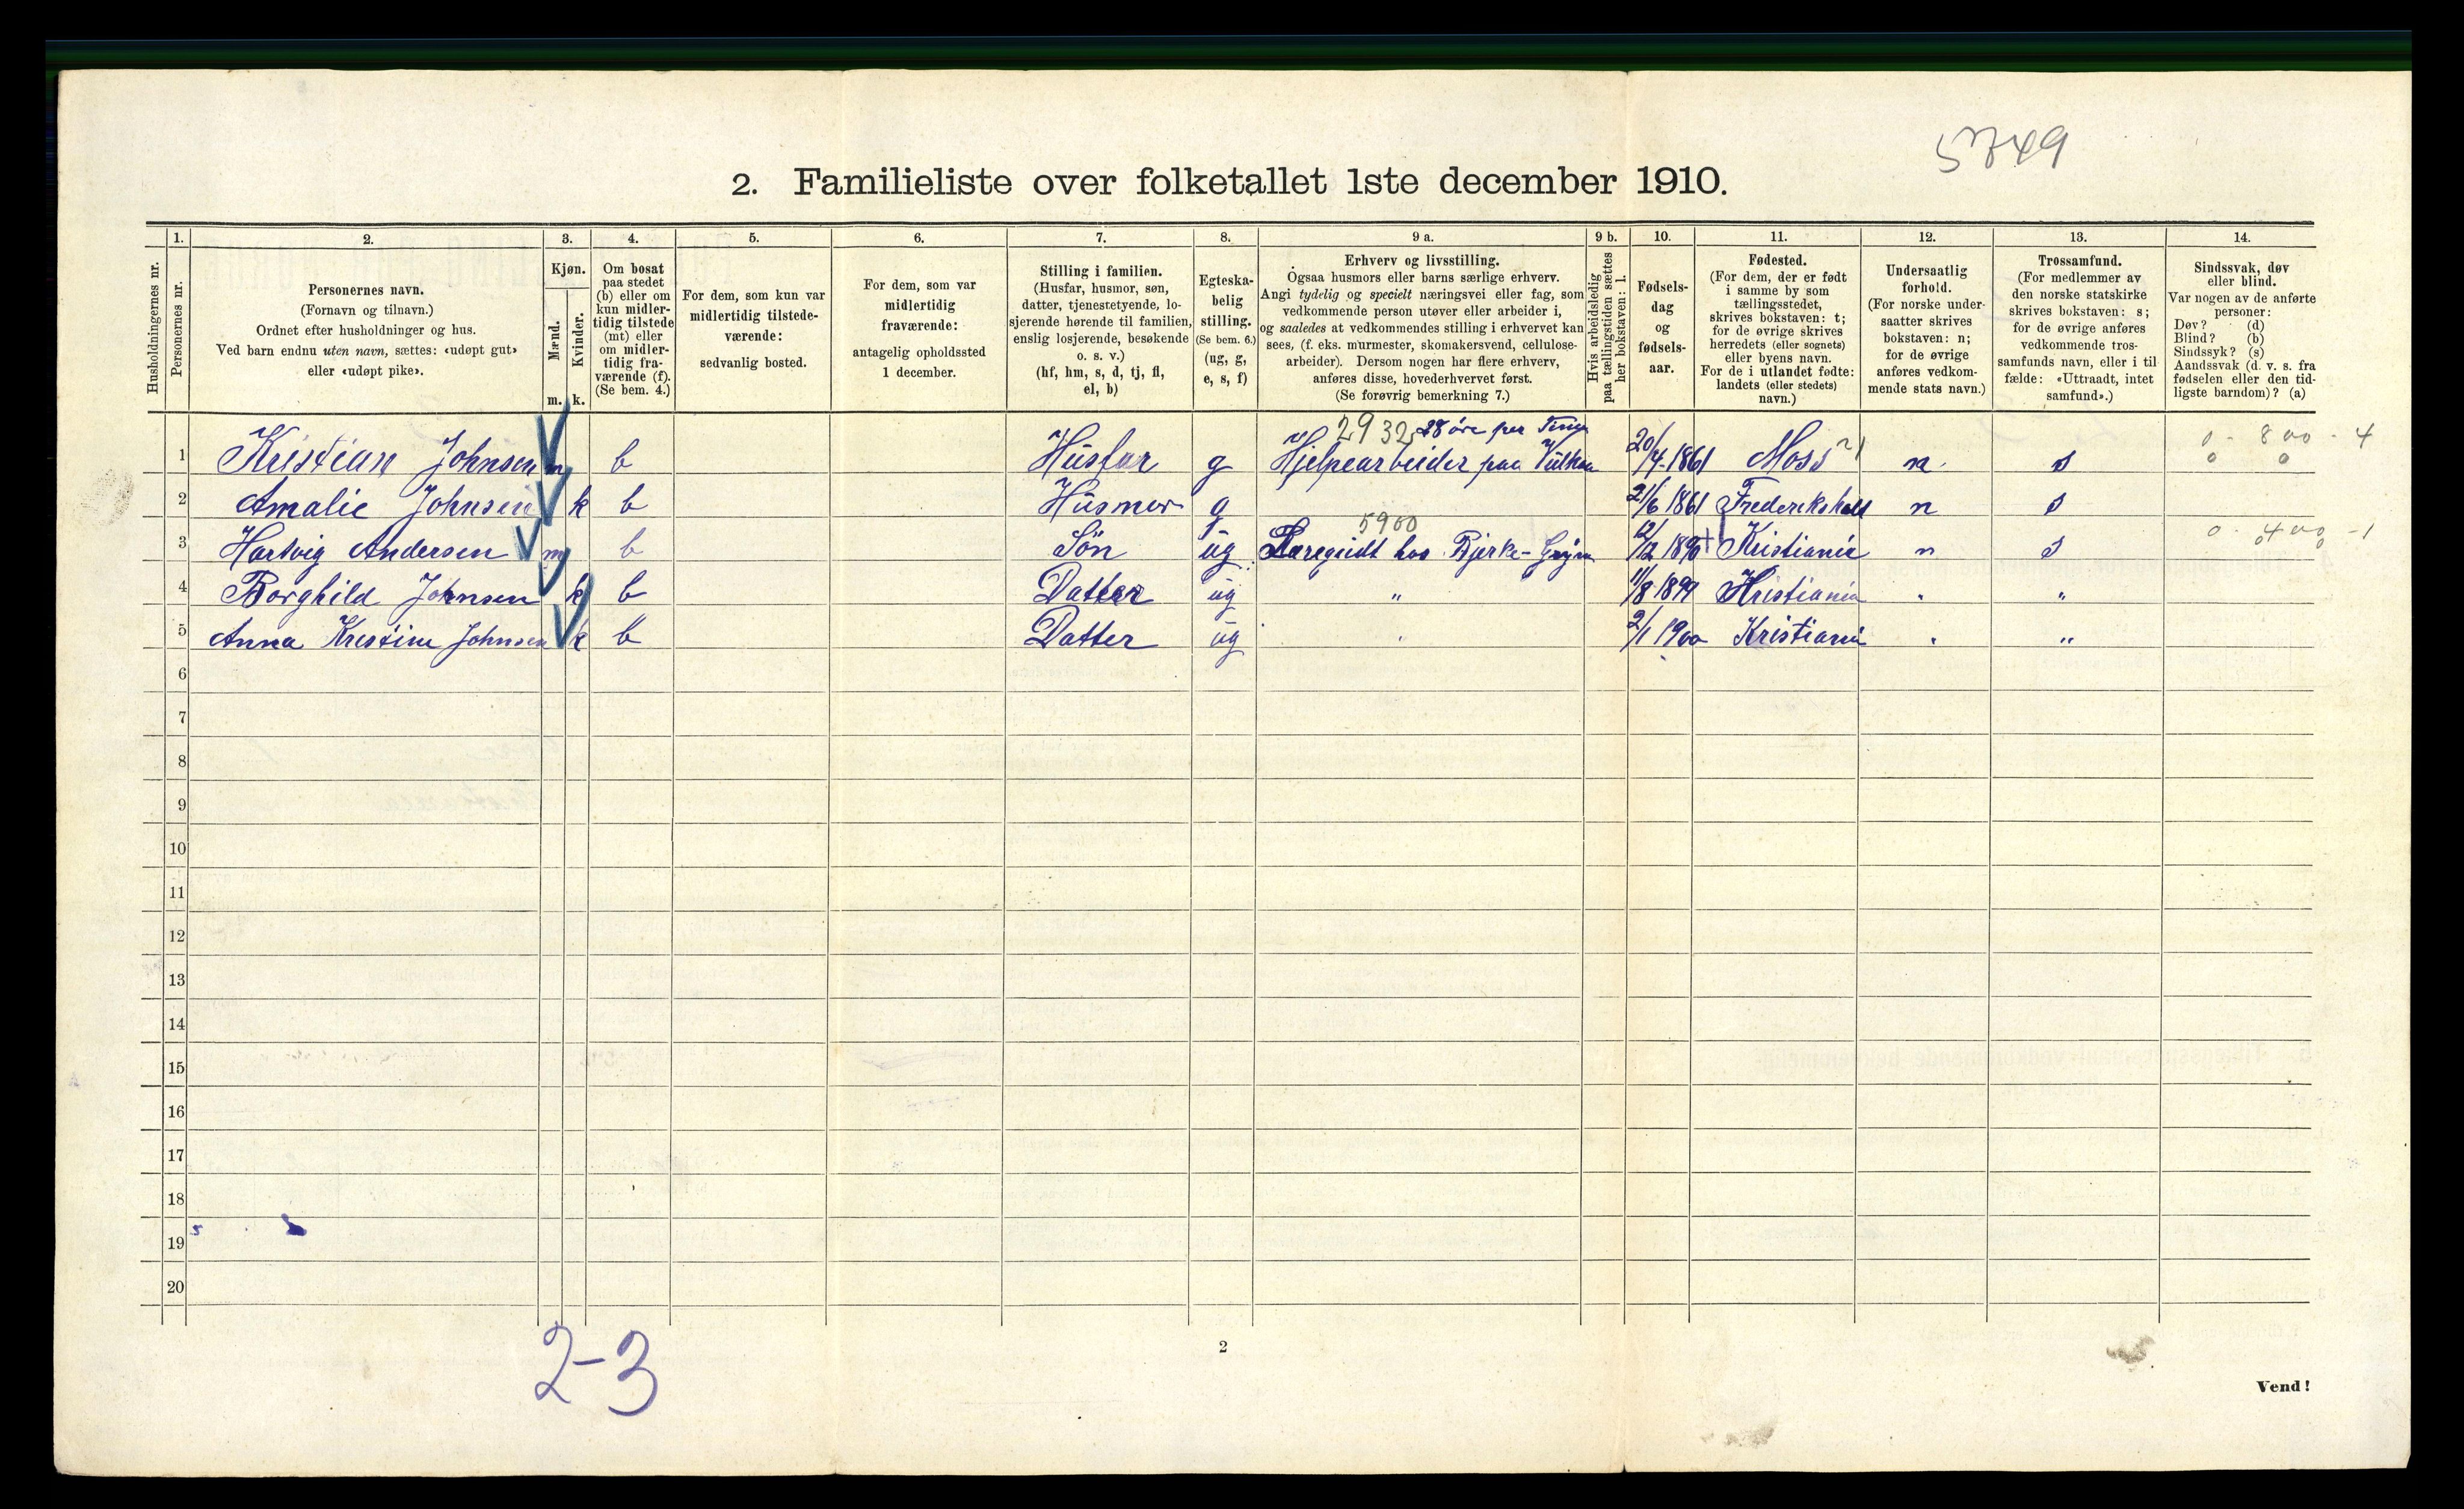 5749
2. Familieliste over folketallet 1ste december 1910.
Husholdningernes nr.
1.
Personernes nr.
2.
Personernes navn.
(Fornavn og tilnavn.)
Ordnet efter husholdninger og hus.
Ved barn endnu uten navn, sættes: «udøpt gut»
eller «udøpt pike».
3.
Kjøn.
Mænd.
Kvinder.
m. k.
4.
Om bosat
paa stedet
(b) eller om
kun midler-
tidig tilstede
(mt) eller
om midler-
tidig fra-
værende (f).
(Se bem. 4.)
5.
For dem, som kun var
midlertidig tilstede-
værende:
sedvanlig bosted.
6.
For dem, som var
midlertidig
fraværende:
antagelig opholdssted
1 december.
7.
Stilling i familien.
(Husfar, husmor, søn,
datter, tjenestetyende, lo-
sjerende hørende til familien,
enslig losjerende, besøkende
o. s. v.)
(hf, hm, s, d, tj, fl,
el, b)
8.
Egteska-
belig
stilling.
(Se bem. 6.)
(ug, g,
e, s, f)
9 a.
Erhverv og livsstilling.
Ogsaa husmors eller barns særlige erhverv.
Angi tydelig og specielt næringsvei eller fag, som
vedkommende person utøver eller arbeider i,
og saaledes at vedkommendes stilling i erhvervet kan
sees, (f. eks. murmester, skomakersvend, cellulose-
arbeider). Dersom nogen har flere erhverv,
anføres disse, hovederhvervet først.
(Se forøvrig bemerkning 7.)
9 b.
Hvis arbeidsledig
paa tællingstiden sættes
her bokstaven: l.
10.
Fødsels-
dag
og
fødsels-
aar.
11.
Fødested.
(For dem, der er født
i samme by som
tællingsstedet,
skrives bokstaven: t;
for de øvrige skrives
herredets (eller sognets)
eller byens navn.
For de i utlandet fødte:
landets (eller stedets)
navn.)
12.
Undersaatlig
forhold.
(For norske under-
saatter skrives
bokstaven: n;
for de øvrige
anføres vedkom-
mende stats navn.)
13.
Trossamfund.
(For medlemmer av
den norske statskirke
skrives bokstaven: s;
for de øvrige anføres
vedkommende tros-
samfunds navn, eller i til
fælde: «Uttraadt, intet
samfund».)
14.
Sindssvak, døv
eller blind.
Var nogen av de anførte
personer:
Døv? (d)
Blind? (b)
Sindssyk? (s)
Aandssvak (d. v. s. fra
fødselen eller den tid-
ligste barndom)? (a)
2932 28 öre per Time 0 - 800 - 4
1 Kristian Johnsen m b Husfar g Hjelpearbeider paa Vulkan 20/4-1861 Moss 21 n s 0 0
2 Amalie Johnsen k b Husmor g 21/6 1861 Frederikshald n s
5900 0 - 400 - 1
3 Hartvig Andersen m b Sön ug Læregudt hos Bjerke- 12/12 1890 Kristiania n s
4 Borghild Johnsen k b Datter ug " 11/8 1899 Kristiania " "
5 Anna Kristine Johnsen k b Datter ug " 2/1 1900 Kristiania " "
6
7
8
9
10
11
12
13
14
15
16
17
18
19
20
2-3
2
Vend!